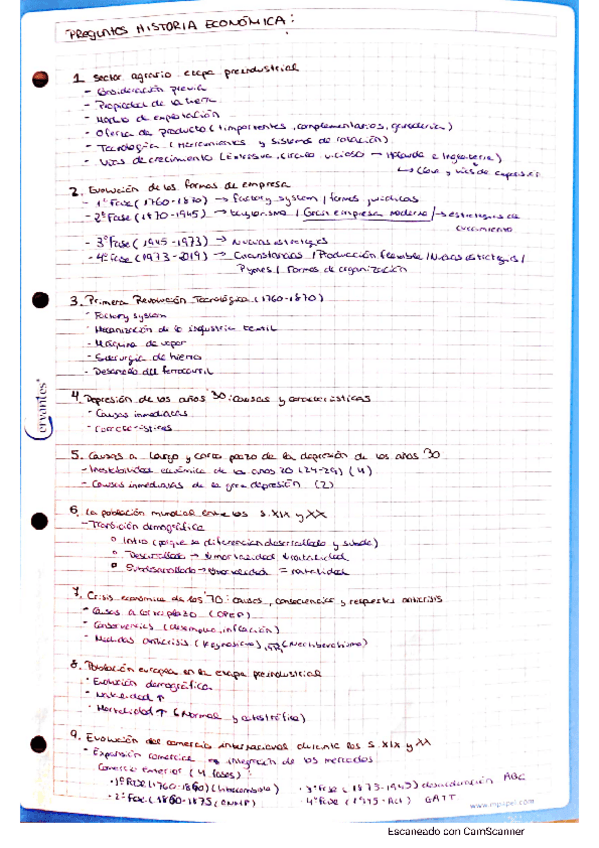 PREGUNTAS HISTORIA ECONÓMICA:
1. Sector agrario etapa preindustrial
- Consideración previa
- Propiedad de la tierra
- Modelo de explotación
- Oferta de producto ( , complementarios, ganadería)
- Tecnología (Herramientas y sistemas de rotación)
- Vías de crecimiento (extensiva, círculo vicioso → Holanda e Inglaterra)
↳ Clave y vías de expansión
2. Evolución de las formas de empresa
- 1ª Fase (1760-1870) → factory system / formas jurídicas
- 2ª Fase (1870-1945) → / Gran empresa moderna / → estrategias de
crecimiento
- 3ª Fase (1945-1973) → Nuevas estrategias
- 4ª Fase (1973-2019) → Circunstancias / Producción flexible / Nuevas estrategias /
Pymes / Formas de organización
3. Primera Revolución Tecnológica (1760-1870)
- Factory system
- Mecanización de la industria textil
- Máquina de vapor
- Siderurgia de hierro
- Desarrollo del ferrocarril
4. Depresión de los años 30: causas y características
- Causas inmediatas
- Características
5. Causas a largo y corto plazo de la depresión de los años 30
- Inestabilidad económica de los años 20 (24-29) (4)
- Causas inmediatas de la gran depresión (2)
6. La población mundial entre los S. XIX y XX
- Transición demográfica
o Intro (porque se diferencian desarrollado y subde)
o Desarrollado → ↓mortalidad ↓natalidad
o Subdesarrollado → ↓mortalidad = natalidad
7. Crisis económica de los 70: causas, consecuencias y respuestas anticrisis
- Causas a corto plazo (OPEP)
- Consecuencias (desempleo, inflación)
- Medidas anticrisis (Keynesiano) (Neoliberalismo)
8. Población europea en la etapa preindustrial
- Evolución demográfica
- Natalidad ↑
- Mortalidad ↑ (Normal y catastrófica)
9. Evolución del comercio internacional durante los S. XIX y XX
- Expansión comercial → integración de los mercados
Comercio exterior (4 fases):
· 1ª Fase (1760-1860) (librecambio) · 3ª Fase (1873-1945) ABC
· 2ª Fase (1860-1875) · 4ª Fase GATT
Cervantes
Escaneado con CamScanner